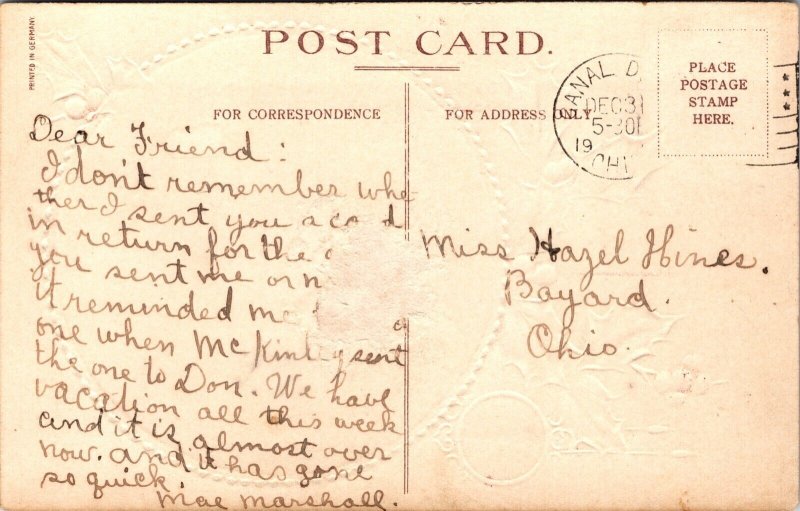 POST CARD.
PRINTED IN GERMANY.
FOR CORRESPONDENCE
FOR ADDRESS ONLY.
PLACE
POSTAGE
STAMP
HERE.
CANAL D
DEC 31
5-30
19
OHI
Dear Friend:
I don't remember whe
ther I sent you a card
in return for the
you sent me or n
it reminded me
one when McKinley sent
the one to Don. We have
vacation all this week
and it is almost over
now. and it has gone
so quick.
Mae Marshall.
Miss Hazel Hines.
Bayard.
Ohio.